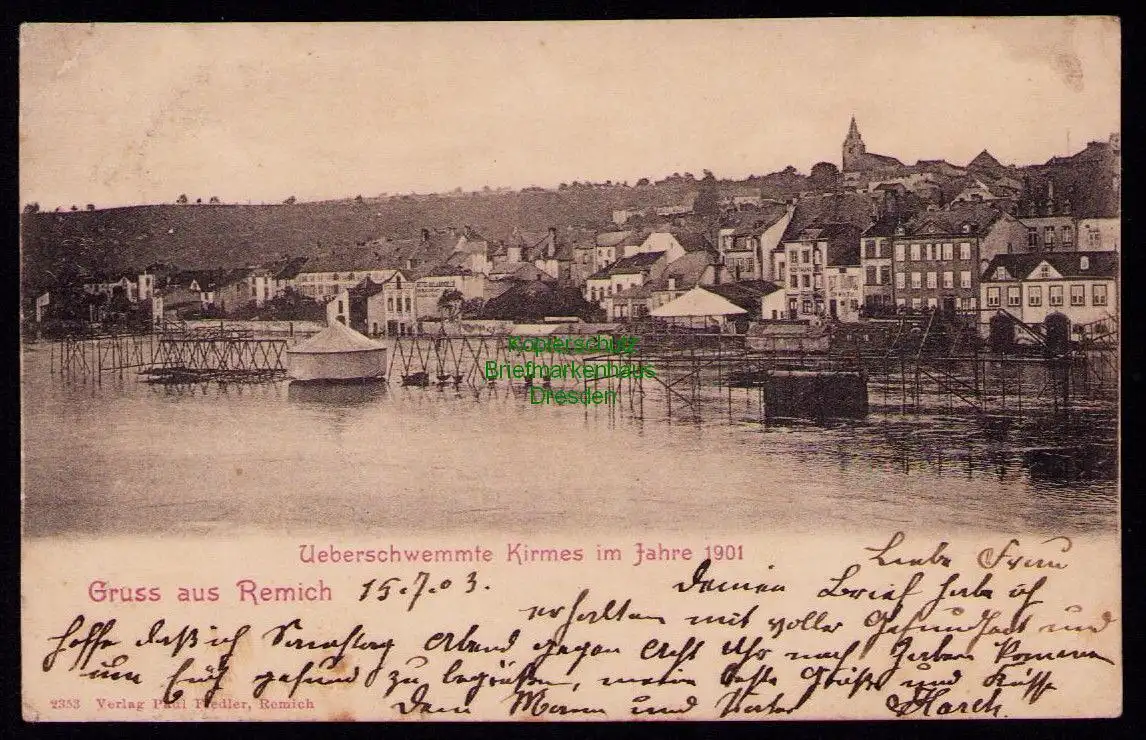 Kopierschutz
Briefmarkenhaus
Dresden
Ueberschwemmte Kirmes im Jahre 1901
Gruss aus Remich
15.7.03.
Liebe Frau
Deinen Brief hab ich
erhalten mit voller Gesundheit und
hoffe daß ich Samstag Abend gegen Acht Uhr nach kommen
um Euch gesund zu begrüßen, meine beste Grüße und Küsse
Dein Mann und Vater
2353 Verlag Paul Fiedler, Remich